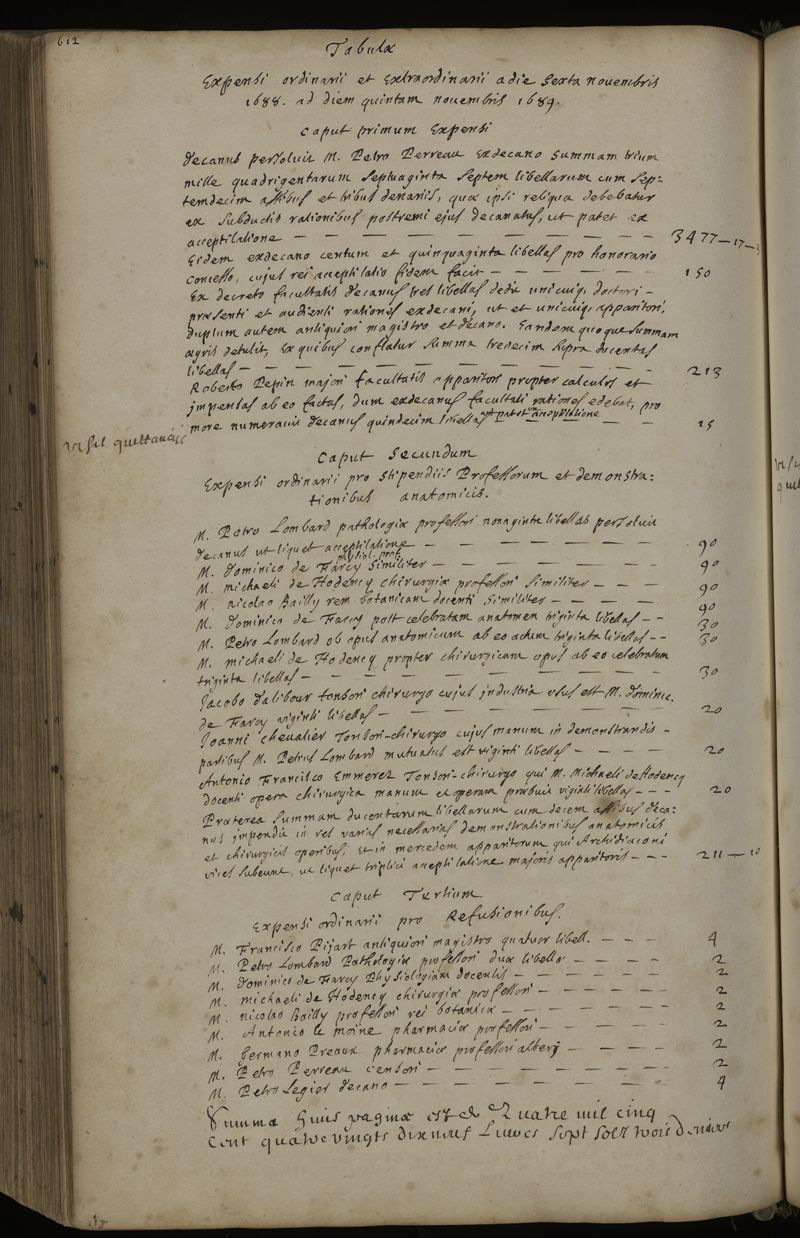 612
Tabula
Expensi ordinarii et Extraordinarii a die sexta novembris
1688. ad diem quintam novembris 1689.
Caput primum Expensi
Decanus persoluit M. Petro Perreau Exdecano Summam trium
mille quadrigentarum septuaginta septem libellarum cum sep=
temdecim assibus et tribus denariis, quæ ipsi reliqua debebatur
ex subductis rationibus postremi ejus decanatus, ut patet ex
acceptilatione — — — — — — — — 3477—17—3
Eidem exdecano centum et quinquaginta libellas pro honorario
concesso, cujus rei acceptilatio fidem facit — — — — — 150
Ex decreto facultatis Decanus tres libellas dedit unicuiq. doctori
præsenti et audienti rationes exdecani, ut et unicuiq apparitori,
duplum autem antiquiori magistro et decano. Eandem quoque summam
ægris detulit, Ex quibus conflatur summa tredecim supra ducentas
libellas — — — — — — — — — 213
Roberto Pepin majori facultatis apparitori propter calculos et
impensas ab eo factas, dum exdecanus facultati rationes edebat, pro
more numeravit Decanus quindecim libellas ut patet ex acceptilatione — — 15
visis quittanciis
Caput Secundum
Expensi ordinarii pro stipendiis Professorum et demonstra=
tionibus anatomicis.
M. Petro Lombard pathologiæ professori nonaginta libellas persoluit
decanus ut liquet acceptilatione — — — — — 90
M. Dominico de Farcy physiol. prof. similiter — — — — — 90
M. michaeli de Hodency chirurgiæ professori similiter — — — 90
M. nicolao Bailly rem botanicam docenti similiter — — — — 90
M. Dominico de Farcy post celebratam anatomen triginta libellas — — 30
M. Petro Lombard ob opus anatomicum ab eo actum triginta libellas — — 30
M. michaeli de Hodency propter chirurgicum opus ab eo celebratum
triginta libellas — — — — — — — — — 30
Jacobo Dalibour tonsori chirurgo cujus industria usus est M. Dominic.
de Farcy viginti libellas — — — — — — — 20
Joanni Chevalier Tonsori-chirurgo cujus manum in demonstrandis
partibus M. Petrus Lombard mutuatus est viginti libellas — — — — 20
Antonio Francisco Emmerez Tonsori-chirurgo qui M. Michaeli de Hodency
docenti opera chirurgica manum et operam præbuit viginti libellas — — — 20
Præterea summam ducentarum libellarum cum decem assibus deca=
nus impendit in res varias necessarias demonstrationibus anatomicis
et chirurgicis operibus, et in mercedem apparitorum qui Archidiaconi
vices subeunt, ut liquet triplici acceptilatione majoris apparitoris — — — 211—10
Caput Tertium
Expensi ordinarii pro Refusionibus.
M. Francisco Pijart antiquiori magistro quatuor libell. — — — 4
M. Petro Lombard Pathologiæ professori duæ libellæ — — — — 2
M. Dominico de Farcy Physiologiam docenti — — — — — 2
M. michaeli de Hodency chirurgiæ professori — — — — 2
M. nicolao Bailly professori rei botanicæ — — — — — 2
M. Antonio le moine pharmaciæ professori — — — — — 2
M. Germano Preaux pharmaciæ professori alteri — — — — 2
M. Petro Perreau censori — — — — — — — — 2
M. Petro Legier decano — — — — — — — — — 4
Summa huius paginæ est de Quatre mil cinq
Cent quatre vingts dix neuf Livres sept solz trois Deniers